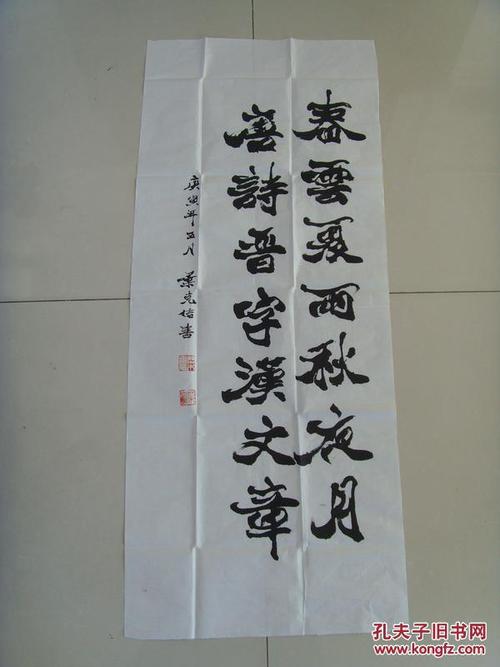 春雲夏雨秋夜月
唐詩晉字漢文章
庚寅年五月 葉克信書
孔夫子旧书网
www.kongfz.com